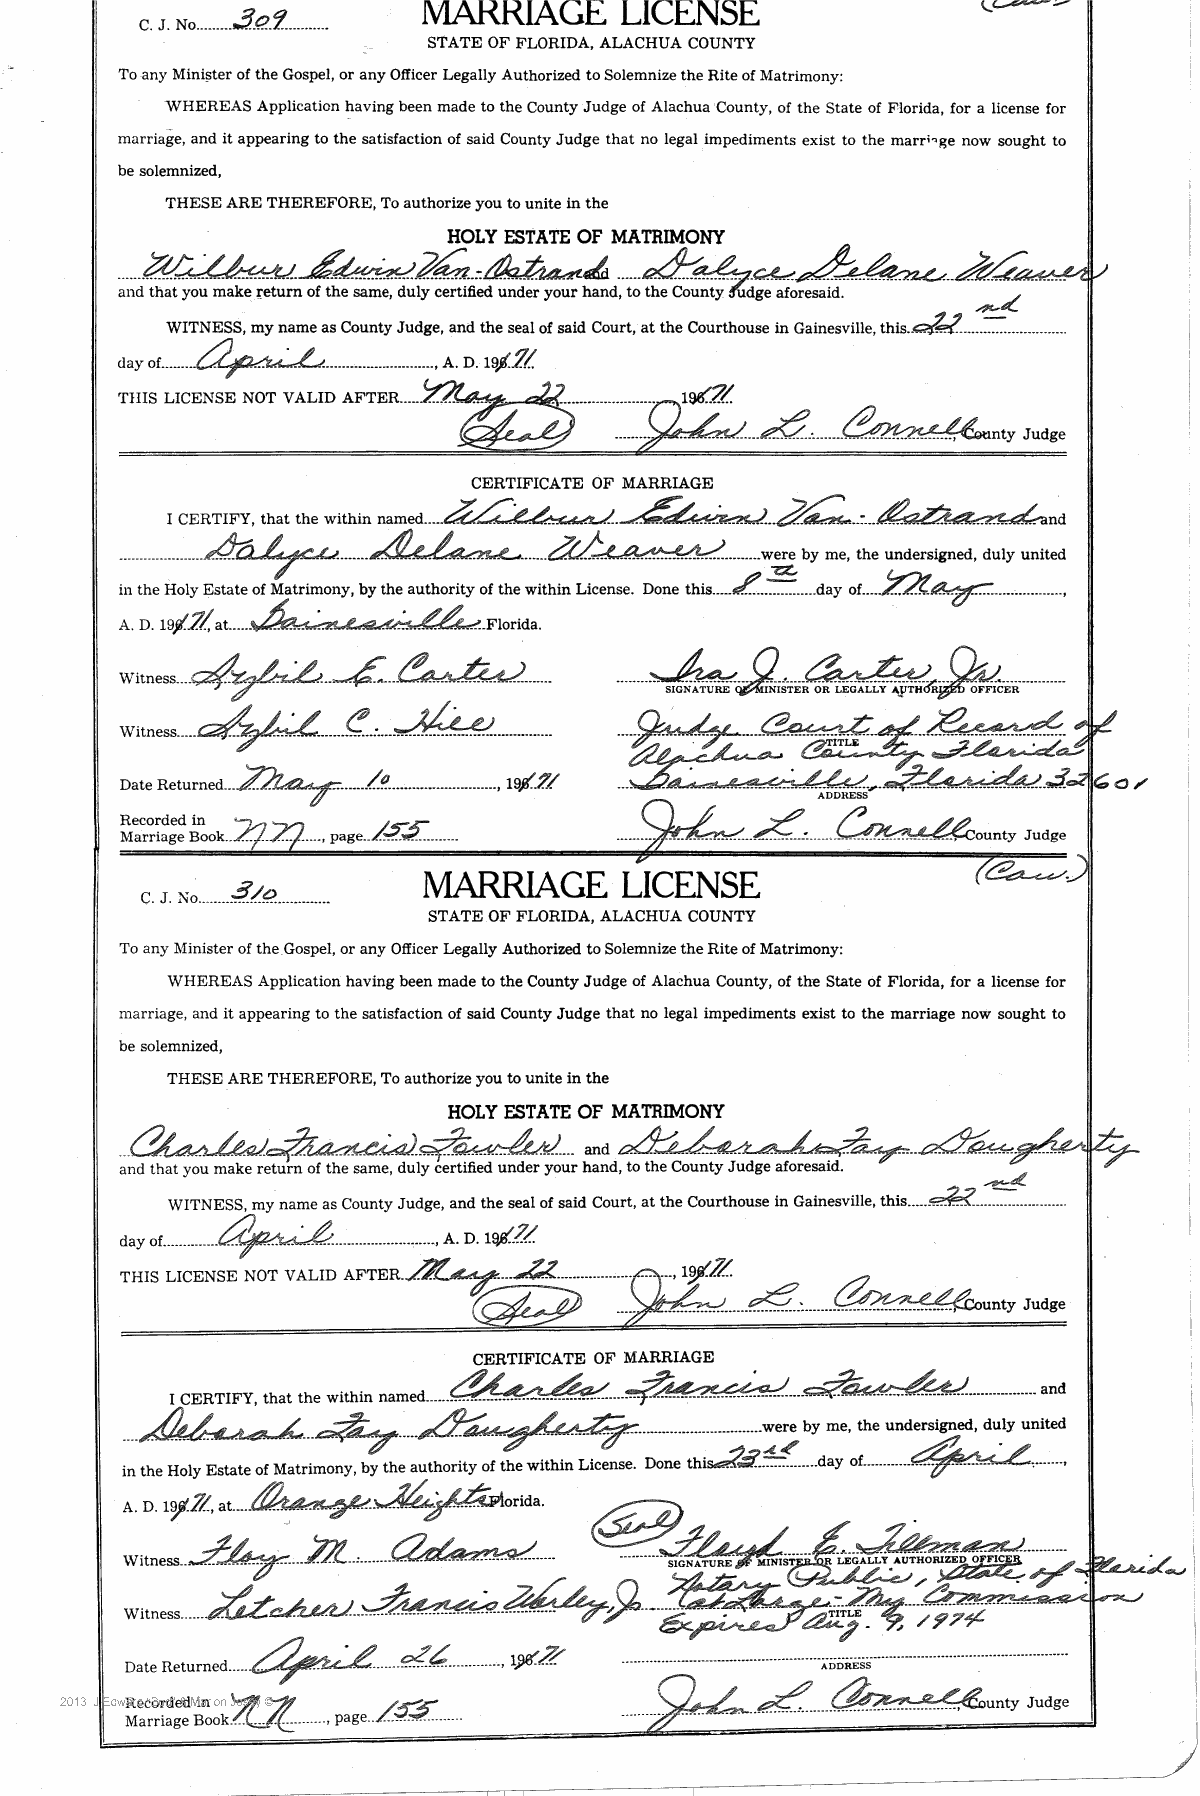 (Cau.)
C. J. No. 309
MARRIAGE LICENSE
STATE OF FLORIDA, ALACHUA COUNTY
To any Minister of the Gospel, or any Officer Legally Authorized to Solemnize the Rite of Matrimony:
WHEREAS Application having been made to the County Judge of Alachua County, of the State of Florida, for a license for
marriage, and it appearing to the satisfaction of said County Judge that no legal impediments exist to the marriage now sought to
be solemnized,
THESE ARE THEREFORE, To authorize you to unite in the
HOLY ESTATE OF MATRIMONY
Wilbur Edwin Van-Ostrand and Dalyce Delane Weaver
and that you make return of the same, duly certified under your hand, to the County Judge aforesaid.
WITNESS, my name as County Judge, and the seal of said Court, at the Courthouse in Gainesville, this 22nd
day of April, A. D. 1971.
THIS LICENSE NOT VALID AFTER May 22, 1971.
(Seal) John L. Connell, County Judge
CERTIFICATE OF MARRIAGE
I CERTIFY, that the within named Wilbur Edwin Van-Ostrand and
Dalyce Delane Weaver were by me, the undersigned, duly united
in the Holy Estate of Matrimony, by the authority of the within License. Done this 8th day of May,
A. D. 1971, at Gainesville Florida.
Witness Sybil E. Carter Ira J. Carter, Jr.
SIGNATURE OF MINISTER OR LEGALLY AUTHORIZED OFFICER
Witness Sybil C. Hill Judge Court of Record of
TITLE
Alachua County Florida
Date Returned May 10, 1971 Gainesville, Florida 32601
ADDRESS
Recorded in
Marriage Book NN, page 155 John L. Connell, County Judge
(Cau.)
C. J. No. 310
MARRIAGE LICENSE
STATE OF FLORIDA, ALACHUA COUNTY
To any Minister of the Gospel, or any Officer Legally Authorized to Solemnize the Rite of Matrimony:
WHEREAS Application having been made to the County Judge of Alachua County, of the State of Florida, for a license for
marriage, and it appearing to the satisfaction of said County Judge that no legal impediments exist to the marriage now sought to
be solemnized,
THESE ARE THEREFORE, To authorize you to unite in the
HOLY ESTATE OF MATRIMONY
Charles Francis Fowler and Deborah Fay Daugherty
and that you make return of the same, duly certified under your hand, to the County Judge aforesaid.
WITNESS, my name as County Judge, and the seal of said Court, at the Courthouse in Gainesville, this 22nd
day of April, A. D. 1971.
THIS LICENSE NOT VALID AFTER May 22, 1971.
(Seal) John L. Connell, County Judge
CERTIFICATE OF MARRIAGE
I CERTIFY, that the within named Charles Francis Fowler and
Deborah Fay Daugherty were by me, the undersigned, duly united
in the Holy Estate of Matrimony, by the authority of the within License. Done this 23rd day of April,
A. D. 1971, at Orange Heights Florida.
Witness Floy M. Adams (Seal) Floyd E. Tillman
SIGNATURE OF MINISTER OR LEGALLY AUTHORIZED OFFICER
Notary Public, State of Florida
Witness Letcher Francis Worley, Jr at Large - My Commission
TITLE
Expires Aug. 9, 1974
Date Returned April 26, 1971
ADDRESS
2013
Recorded in
Marriage Book NN, page 155 John L. Connell, County Judge